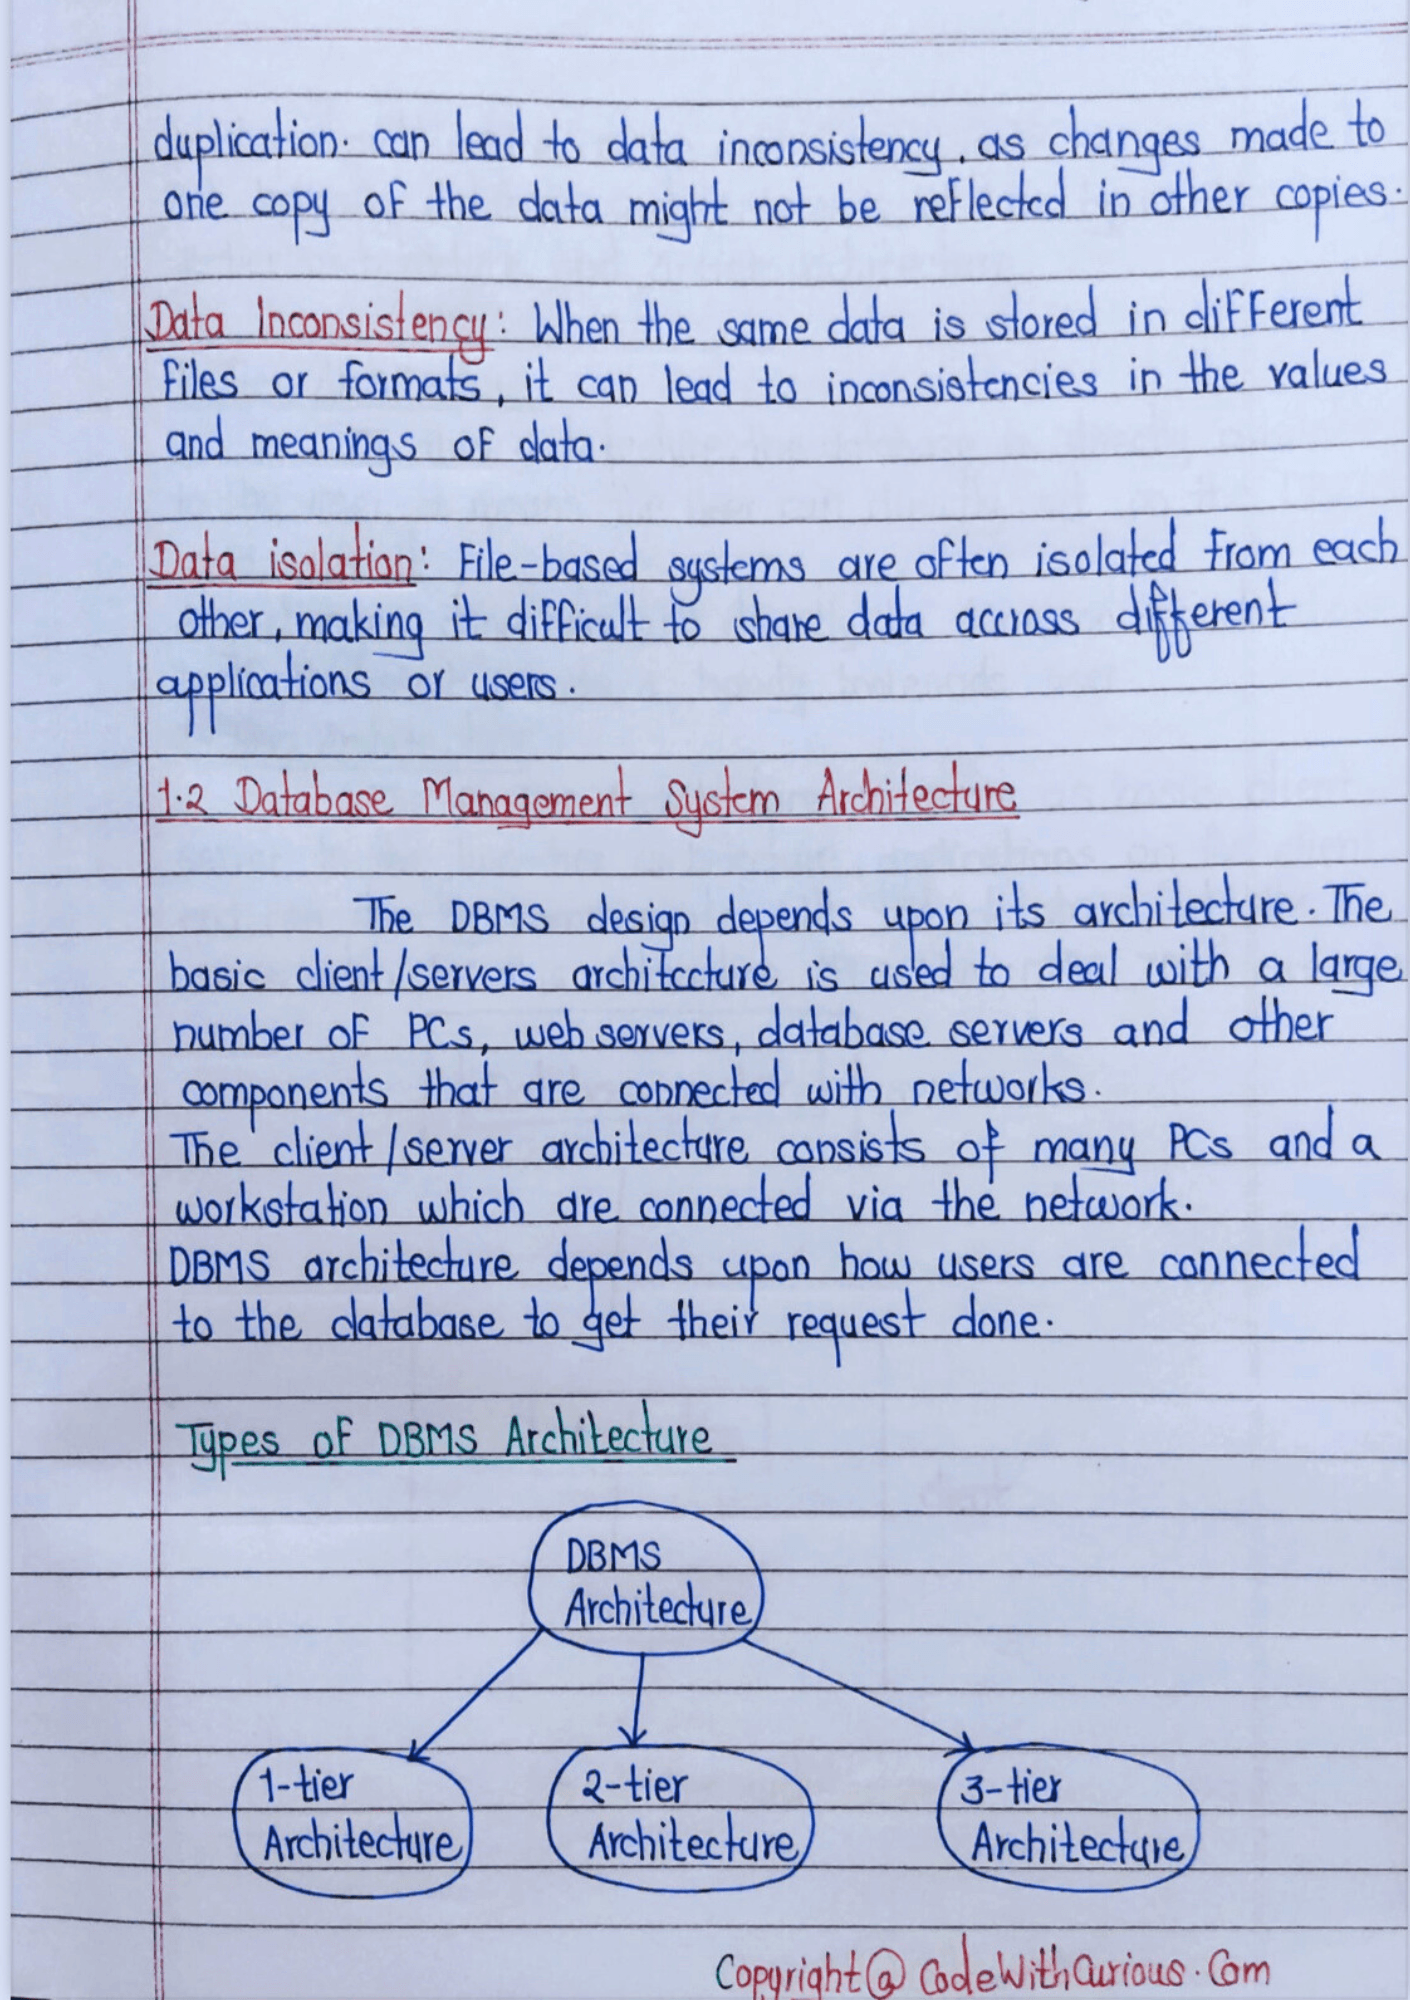 duplication. can lead to data inconsistency, as changes made to
one copy of the data might not be reflected in other copies.
Data Inconsistency: When the same data is stored in different
files or formats, it can lead to inconsistencies in the values
and meanings of data.
Data isolation: File-based systems are often isolated from each
other, making it difficult to share data accross different
applications or users.
1.2 Database Management System Architecture
The DBMS design depends upon its architecture. The
basic client/servers architecture is used to deal with a large
number of PCs, web servers, database servers and other
components that are connected with networks.
The client/server architecture consists of many PCs and a
workstation which are connected via the network.
DBMS architecture depends upon how users are connected
to the database to get their request done.
Types of DBMS Architecture
DBMS
Architecture
1-tier
Architecture
2-tier
Architecture
3-tier
Architecture
Copyright@ CodeWithCurious.Com